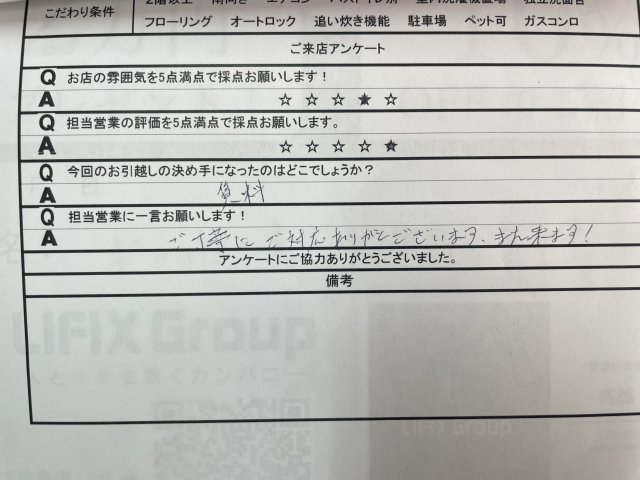 こだわり条件
2階以上 南向き エアコン バストイレ別 室内洗濯機置場 独立洗面台
フローリング オートロック 追い炊き機能 駐車場 ペット可 ガスコンロ
ご来店アンケート
Q お店の雰囲気を5点満点で採点お願いします！
A ☆ ☆ ☆ ★ ☆
Q 担当営業の評価を5点満点で採点お願いします。
A ☆ ☆ ☆ ☆ ★
Q 今回のお引越しの決め手になったのはどこでしょうか？
A 賃料
Q 担当営業に一言お願いします！
A ご丁寧にご対応ありがとございます、また来ます！
アンケートにご協力ありがとうございました。
備考
LIFIX Group
LIFIX Group